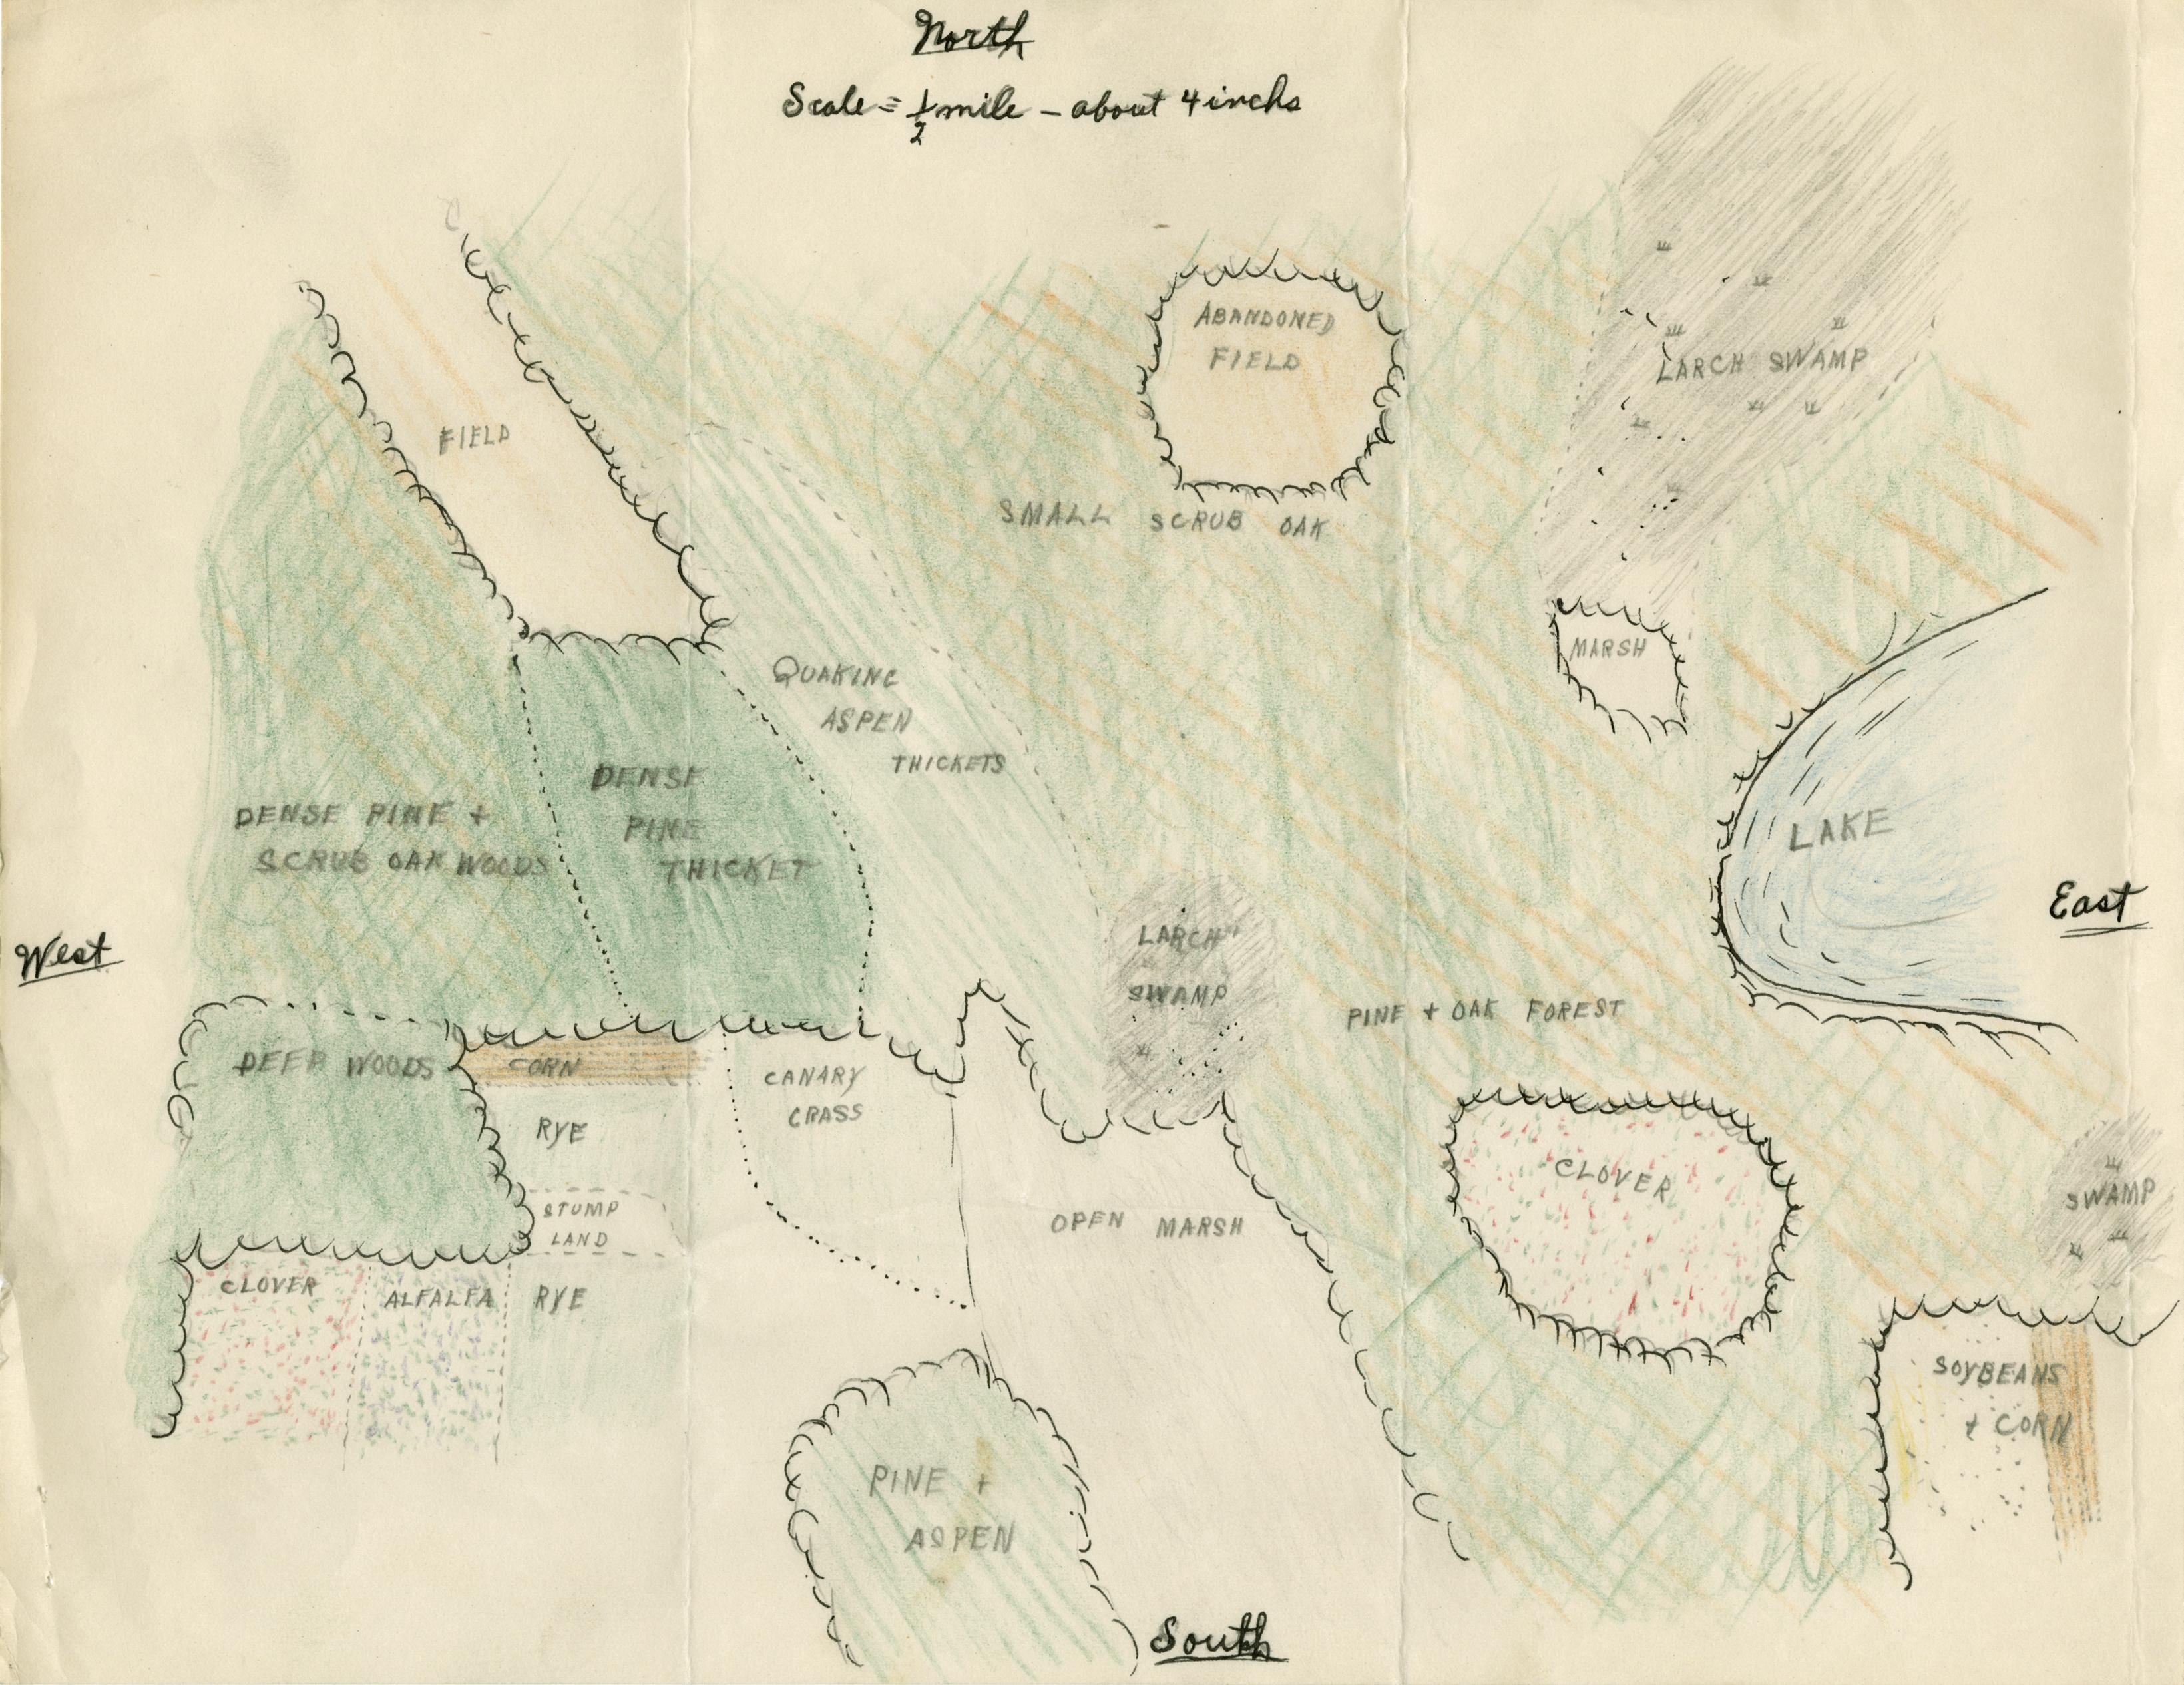 North
Scale = 1/2 mile - about 4 inchs
ABANDONED
FIELD
LARCH SWAMP
FIELD
SMALL SCRUB OAK
MARSH
QUAKING
ASPEN
THICKETS
DENSE
PINE
THICKET
DENSE PINE +
SCRUB OAK WOODS
LAKE
East
West
LARCH
SWAMP
PINE + OAK FOREST
DEEP WOODS
CORN
CANARY
GRASS
RYE
CLOVER
SWAMP
STUMP
LAND
OPEN MARSH
CLOVER
ALFALFA
RYE
SOYBEANS
+ CORN
PINE +
ASPEN
South